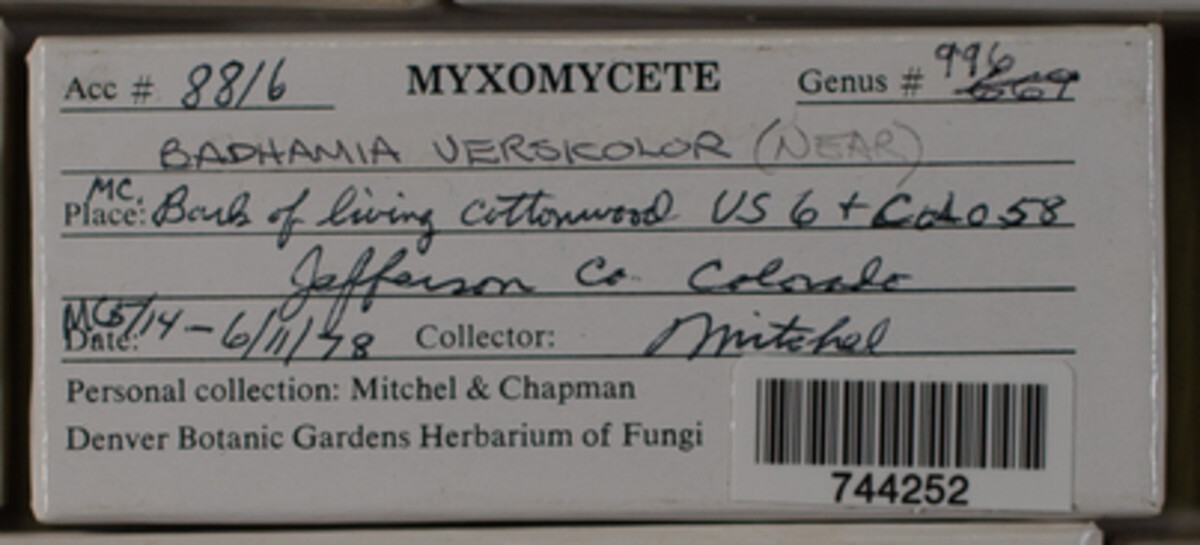 Acc # 8816 MYXOMYCETE Genus # 996 669
BADHAMIA VERSICOLOR (NEAR)
MC.
Place: Bark of living cottonwood US 6 + Colo 58
Jefferson Co. Colorado
MC 5/14 - 6/11/78
Date: Collector: Mitchel
Personal collection: Mitchel & Chapman
Denver Botanic Gardens Herbarium of Fungi
744252